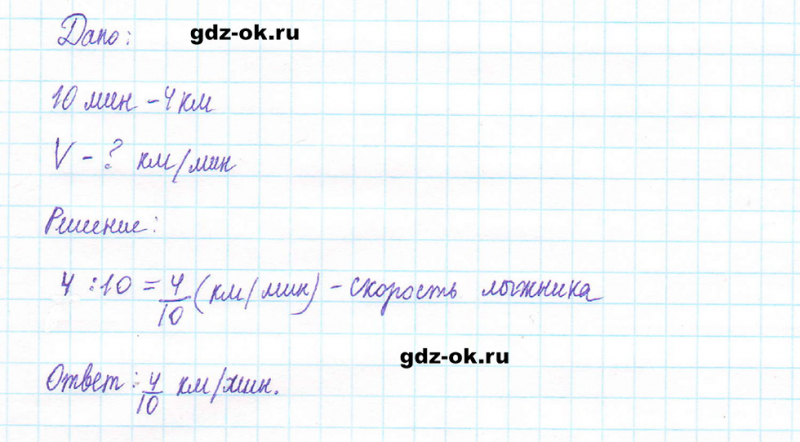 Дано: gdz-ok.ru
10 мин - 4 км
V - ? км/мин
Решение:
4 : 10 = 4/10 (км/мин) - скорость лыжника
gdz-ok.ru
Ответ: 4/10 км/мин.